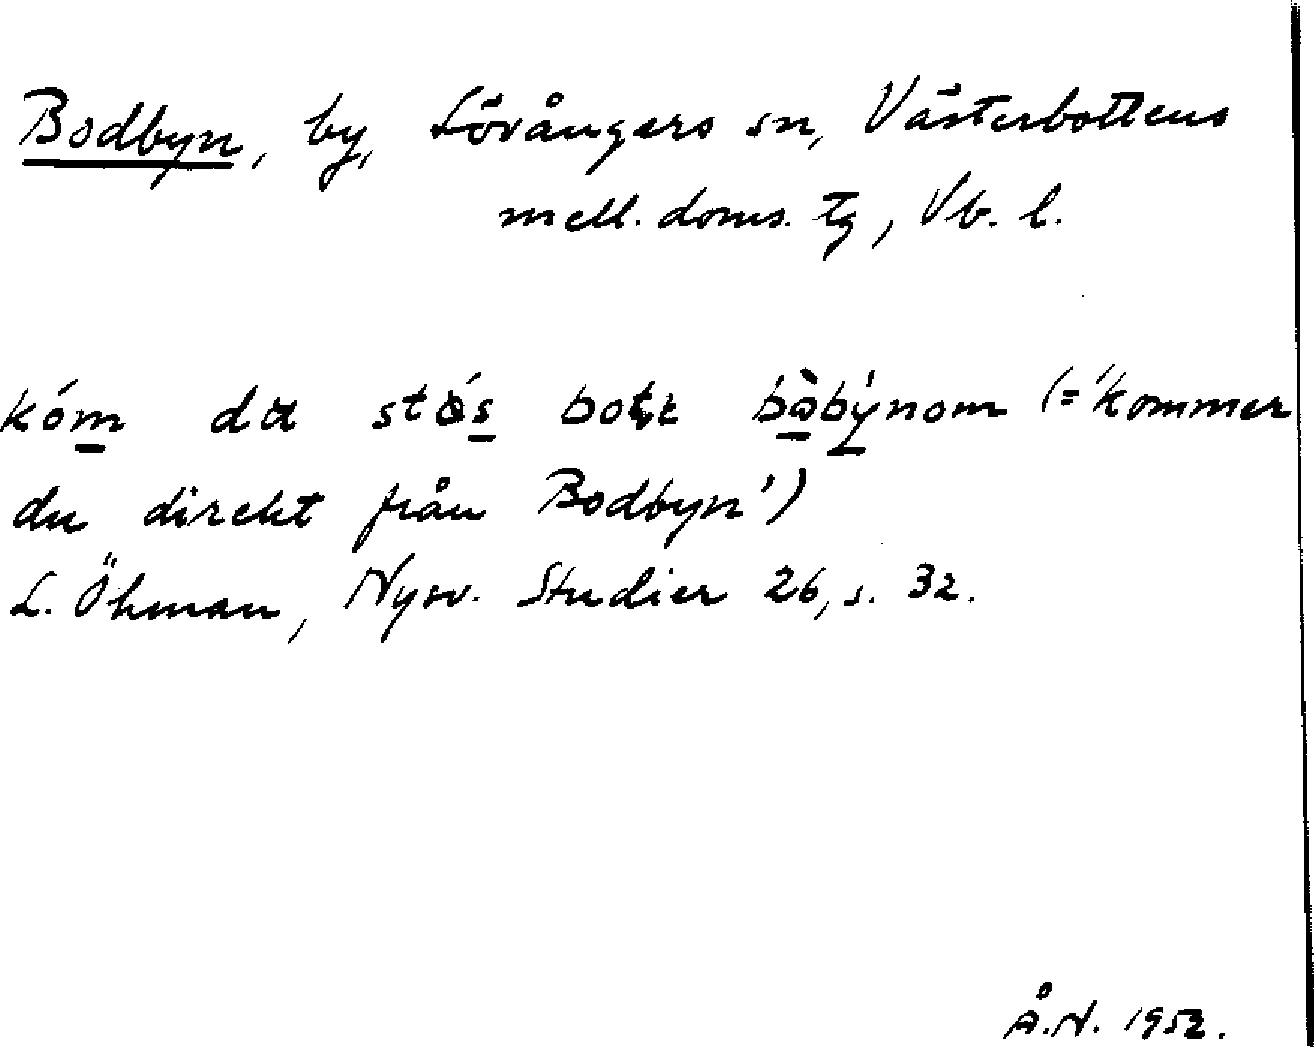 Bodbyn, by, Lövångers sn, Västerbottens
mell. doms. tg, Vb. l.
kóm du stǿs bote bòbýnom (= 'kommer
du direkt från Bodbyn')
L. Öhman, Nysv. Studier 26, s. 32.
Å.N. 1952.